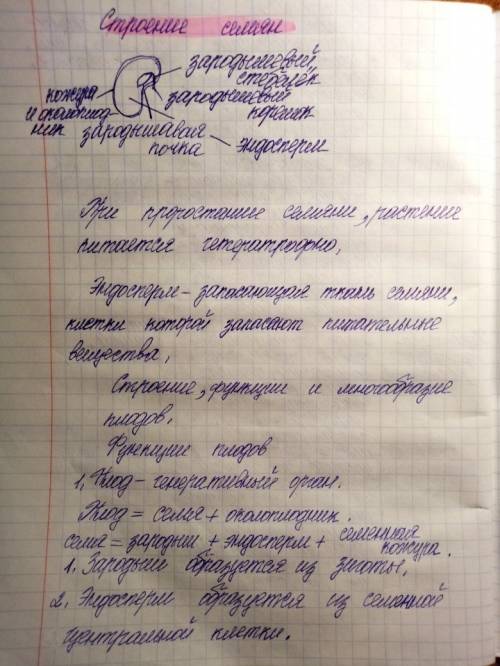 Строение семян
зародышевый
стебелёк
кожура
и околоплод
ник
зародышевый
корешок
зародышавая
почка
эндосперм
При проростание семени, растение
питается гетератрофно,
Эндосперм - запасающая ткань семени,
клетки которой запасают питательные
вещества,
Строение, функции и многообразие
плодов.
Функции плодов
1, Плод - генеративный орган.
Плод = семя + околоплодник.
семя = зародыш + эндосперм + семенная
кожура.
1. Зародыш образуется из зиготы,
2. Эндосперм образуется из семенной
центральной клетки.